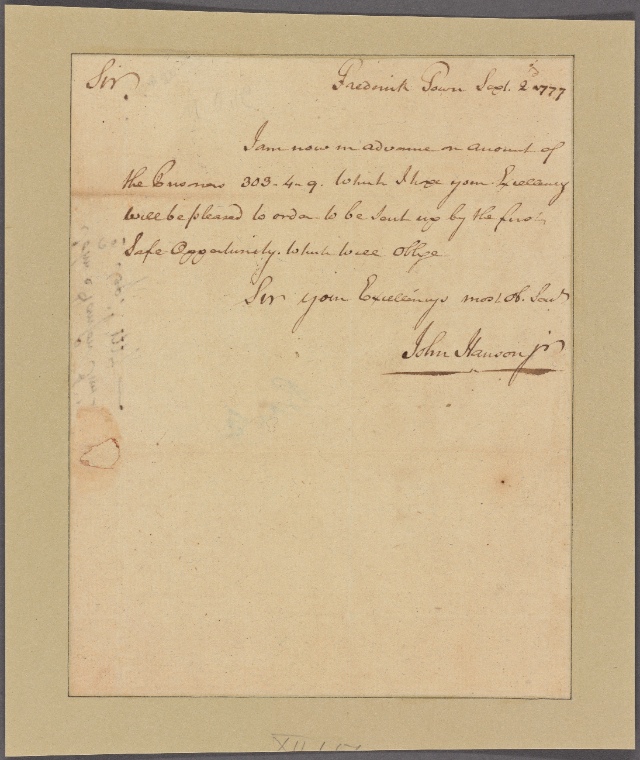 Sir
Frederick Town Sept. 2d 1777
I am now in advance on account of
the Prisoners 303-4-9. Which I hope your Excellency
Will be pleased to order to be Sent up by the first
Safe Opportunity. Which will Oblige
Sir your Excellencys most Ob. Servt
John Hanson jr